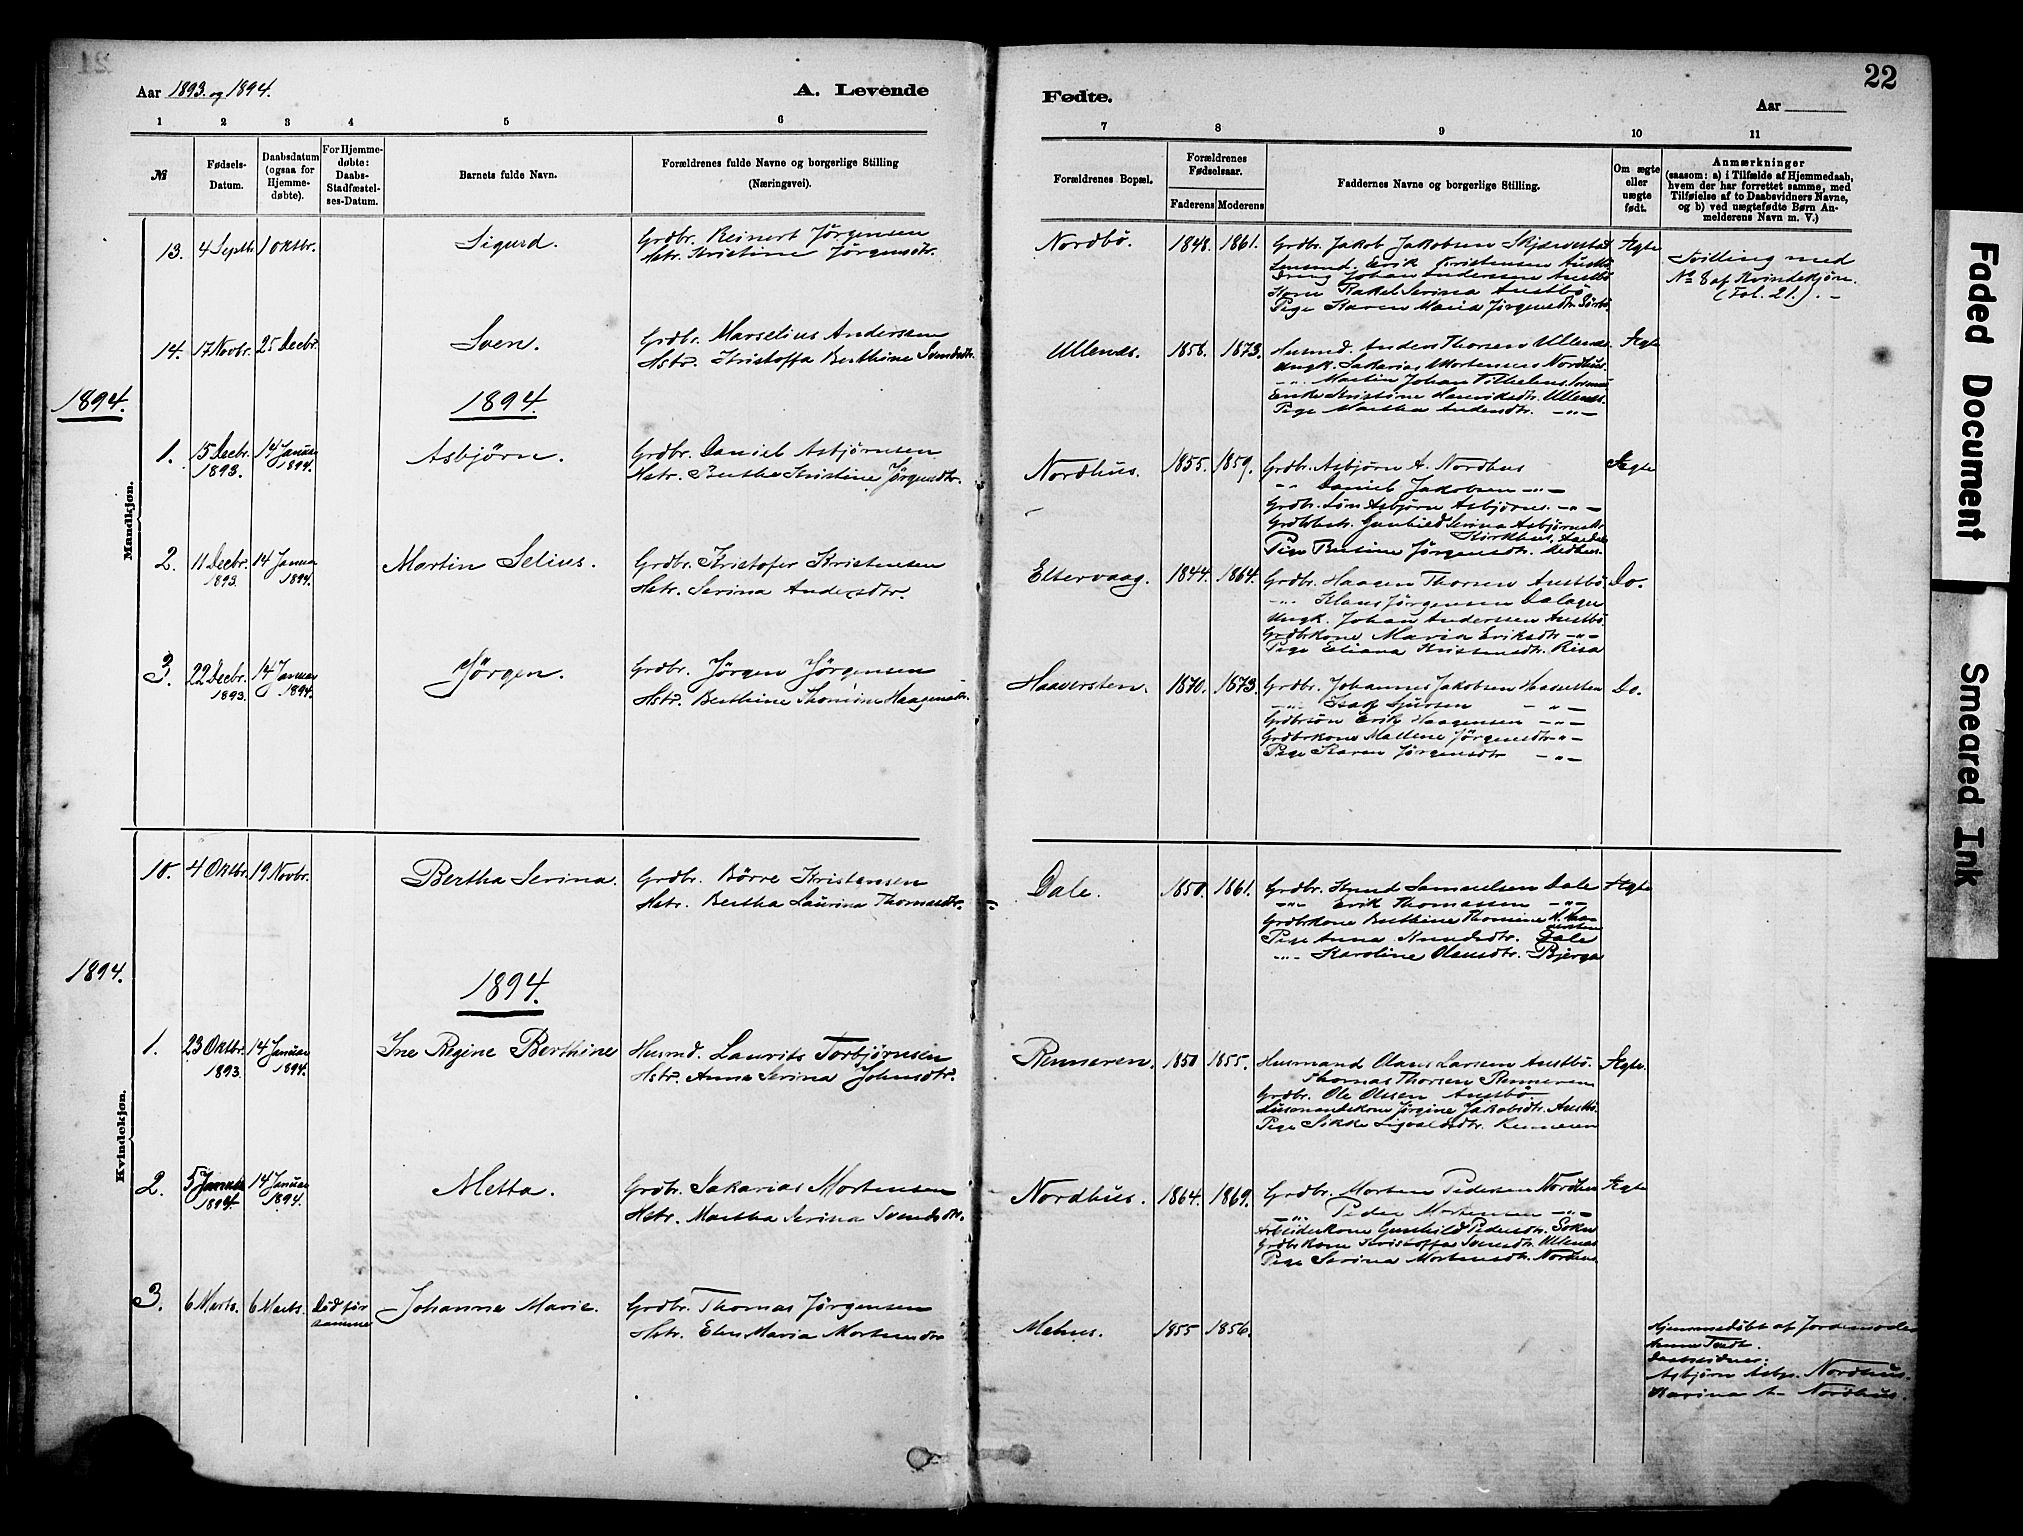 21
Aar 1893. og 1894.
A. Levende
1 2 3 4 5 6
№
Fødsels-
Datum.
Daabsdatum
(ogsaa for
Hjemme-
døbte).
For Hjemme-
døbte:
Daabs-
Stadfæstel-
ses-Datum.
Barnets fulde Navn.
Forældrenes fulde Navne og borgerlige Stilling
(Næringsvei).
Mandkjøn.
13. 4 Septb. 1 Oktbr. Sigurd. Grdbr. Reinert Jørgensen
Hstr. Kristine Jørgensdtr.
14. 17 Novbr. 25 Decbr. Sven. Grdbr. Marselius Andersen
Hstr. Kristoffa Berthine Svendsdtr.
1894. 1894.
1. 15 Decbr. 1893. 14 Januar 1894. Asbjørn. Grdbr. Daniel Asbjørnsen
Hstr. Bertha Kristine Jørgensdtr.
2. 11 Decbr. 1893. 14 Januar 1894. Martin Selius. Grdbr. Kristofer Kristensen
Hstr. Serina Andersdtr.
3. 22 Decbr. 1893. 14 Januar 1894. Jørgen. Grdbr. Jørgen Jørgensen
Hstr. Berthine Thomine Haagensdtr.
Kvindekjøn.
10. 4 Oktbr. 19 Novbr. Bertha Serina. Grdbr. Børre Kristensen
Hstr. Bertha Laurina Thomasdtr.
1894. 1894.
1. 23 Oktbr. 1893. 14 Januar 1894. Ine Regine Berthine Husmd. Laurits Torbjørnsen
Hstr. Anna Serina Johnsdtr.
2. 5 Januar 1894. 14 Januar 1894. Metta. Grdbr. Sakarias Mortensen
Hstr. Martha Serina Svendsdtr.
3. 6 Marts. 6 Marts. Død før samme Johanne Marie. Grdbr. Thomas Jørgensen
Hstr. Elen Maria Mortensdtr
22
Fødte.
Aar
7 8 9 10 11
Forældrenes Bopæl.
Forældrenes
Fødselsaar.
Faderens Moderens
Faddernes Navne og borgerlige Stilling.
Om ægte
eller
uægte
født.
Anmærkninger
(saasom: a) i Tilfælde af Hjemmedaab,
hvem der har forrettet samme, med
Tilføielse af to Daabsvidners Navne,
og b) ved uægtefødte Børn An-
melderens Navn m. V.)
Nordbø. 1848. 1861. Grdbr. Jakob Jakobsen Ægte Tvilling med
Erik Kristensen Austbø No 8 af Kvindekjøn.
Dreng Johan Andersen Austbø (Fol. 21). -
Kone Rakel Serina Austbø
Pige Karen Maria Jørgensdtr. Sørbø
Ullenæs. 1858. 1873. Husmd. Anders Thorsen Ullenæs Ægte
Ungk. Sakarias Mortensen Nordhus.
-"- Martin Johan Vilhelms.
Enke Kristine Henriksdtr. Ullenæs.
Pige Martha Andersdtr. -"-
Nordhus. 1855. 1859. Grdbr. Asbjørn A. Nordhus Ægte
-"- Daniel Jakobsen -"-
Grdbr. Søn Asbjørn Asbjørns. -"-
Gunhild Serina Asbjørnsdtr
Pige Jørgensdtr.
Eltervaag. 1844. 1864. Grdbr. Haagen Thorsen Austbø. Do.
-"- Klaus Jørgensen Dalager
Ungk. Johan Anderssen Austbø.
Grdbrkone Maria Eriksdtr -"-
Pige Eliana Kristensdtr. Risa
Haaversten. 1870. 1873. Grdbr. Johannes Jakobsen Haaversten Do.
-"- Isak Sjursen -"-
Grdbrsøn Erik Haagensen -"-
Grdbrkone Mallene Jørgensdtr -"-
Pige Karen Jørgensdtr -"-
Dale. 1850. 1861. Grdbr. Knud Samuelsen Dale Ægte
-"- Erik Thomassen -"-
Grdbrkone Berthine Thomine H. Haaversten
Pige Anna Knudsdtr. Dale
-"- Karoline Olausdtr. Bjerga
Renneren. 1850 1855. Husmand Olaus Larsen Austbø. Ægte.
Thomas Thorsen Renneren
Grdbr. Ole Olsen Austbø
Husmandskone Jørgine Jakobsdtr. Austbø.
Pige Sikke Sigvaldsdtr. Renneren
Nordhus. 1864. 1869. Grdbr. Morten Pedersen Nordhus Ægte
-"- Peder Mortensen -"-
Arbeiderkone Gunhild Pedersdtr. Sokn
Grdbrkone Kristoffa Svendsdtr. Ullenæs
Pige Serina Mortensdtr. Nordhus
Mehus. 1855 1856. Hjemmedøbt af Jordemoder
Anna
Daabsvidner:
Asbjørn Asbjs. Nordhus.
Marina A- Nordhus.
Faded Document
Smeared Ink